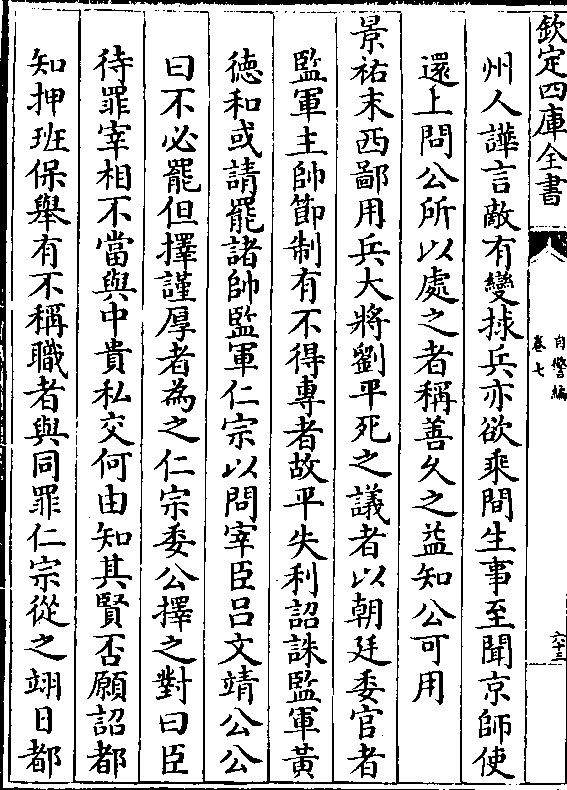 欽定四庫全書
自警編
卷七
六十三
州人譁言敵有變捄兵亦欲乘間生事至聞京師使
還上問公所以處之者稱善久之益知公可用
景祐末西鄙用兵大將劉平死之議者以朝廷委官者
監軍主帥節制有不得專者故平失利詔誅監軍黃
徳和或請罷諸帥監軍仁宗以問宰臣吕文靖公公
曰不必罷但擇謹厚者為之仁宗委公擇之對曰臣
待罪宰相不當與中貴私交何由知其賢否願詔都
知押班保舉有不稱職者與同罪仁宗從之翊日都